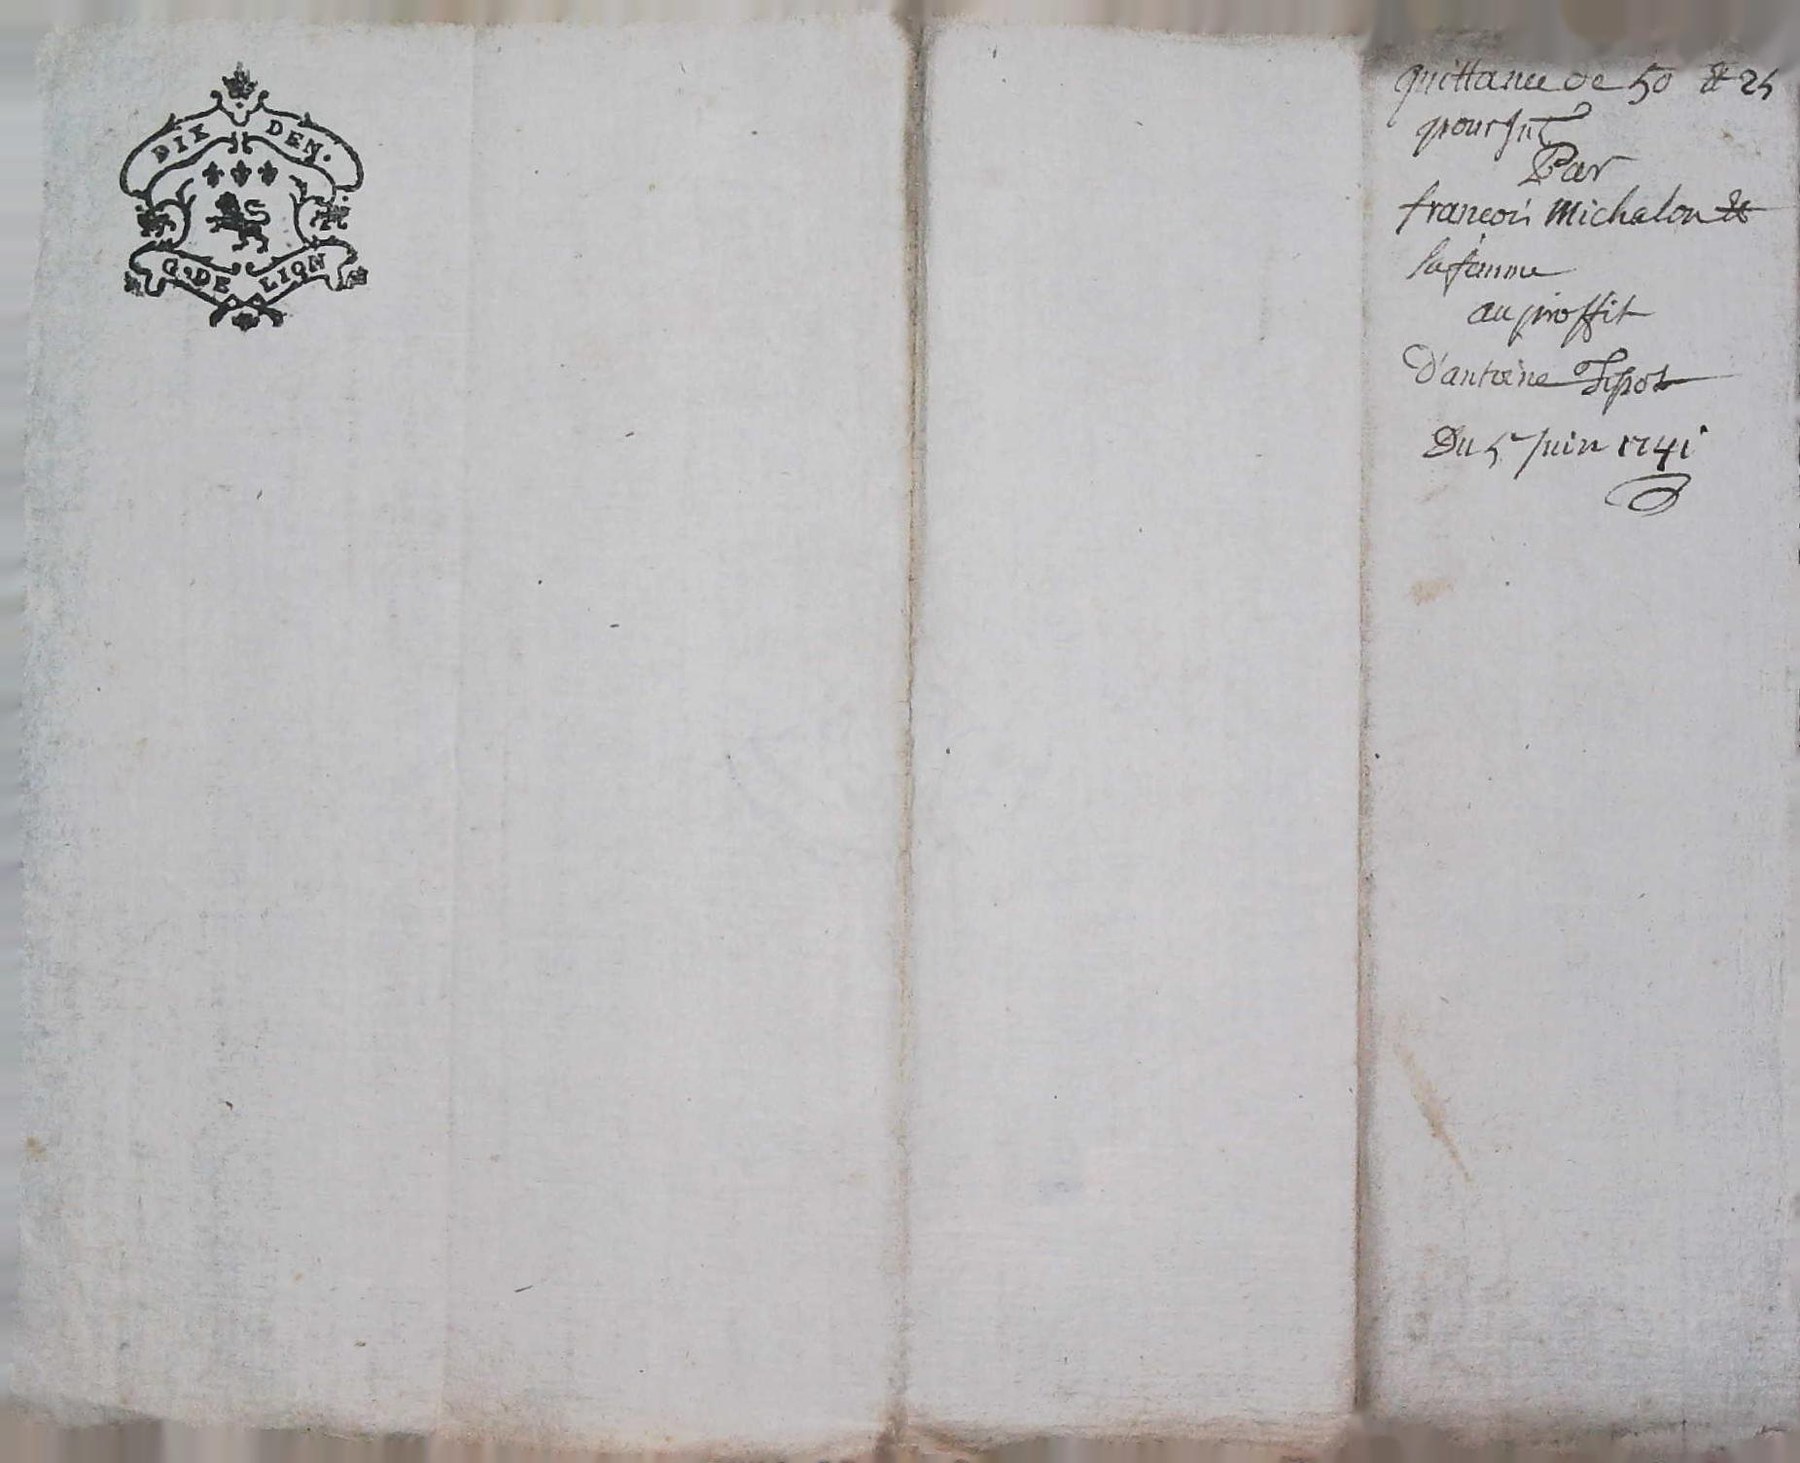 DIX DEN.
G. DE LION
quittance de 50 tt 25
pour
Par
francois Michalon &
sa femme
au proffit
d'antoine
Du 5e Juin 1741